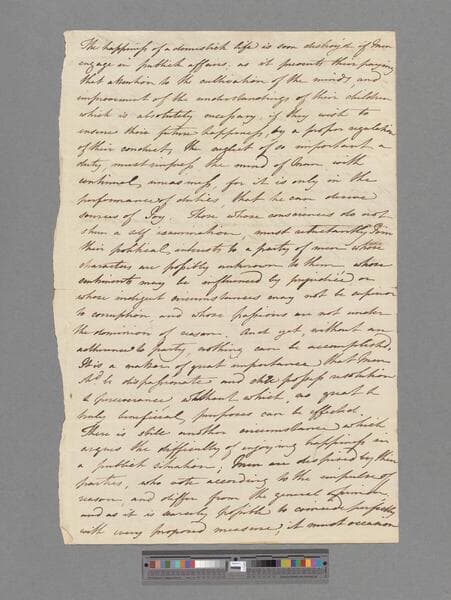 The happiness of a domestick life is soon destroy'd if Men
engage in publick affairs, as it prevents their paying
that attention to the cultivation of the minds, and
improvement of the understandings of their children
which is absolutely necessary, if they wish to
ensure their future happiness, by a proper regulation
of their conduct, the neglect of so important a
duty must impress the mind of Man with
continual uneasiness, for it is only in the
performance of duties, that he can derive
sources of Joy. Those whose consciences do not
shun a self examination, must reluctantly Join
their political interests to a party of men whose
characters are possibly unknown to them whose
sentiments may be influenced by prejudice or
whose indigent circumstances may not be superior
to corruption and whose passions are not under
the dominion of reason. And yet without an
adherence to party, nothing can be accomplished.
It is a matter of great importance that Men
shd. be dispassionate and still possess resolution
& perseverance without which, no great &
truly beneficial purposes can be effected.
There is still another circumstance which
argues the difficulty of enjoying happiness in
a publick situation; Men are despised by their
parties, who vote according to the impulse of
reason, and differ from the general opinion,
and as it is scarcely possible to coincide perfectly
with every proposed measure, it must occasion